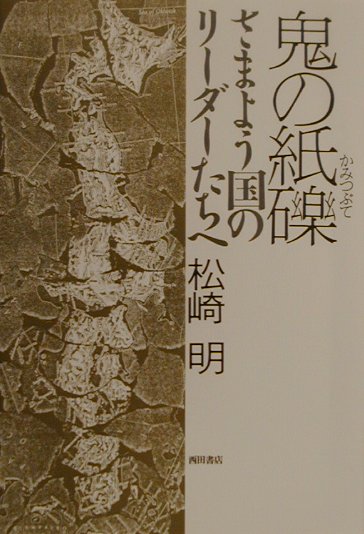 鬼の紙礫
かみつぶて
さまよう国の
リーダーたちへ
松崎 明
西田書店
Sea of Okhotsk